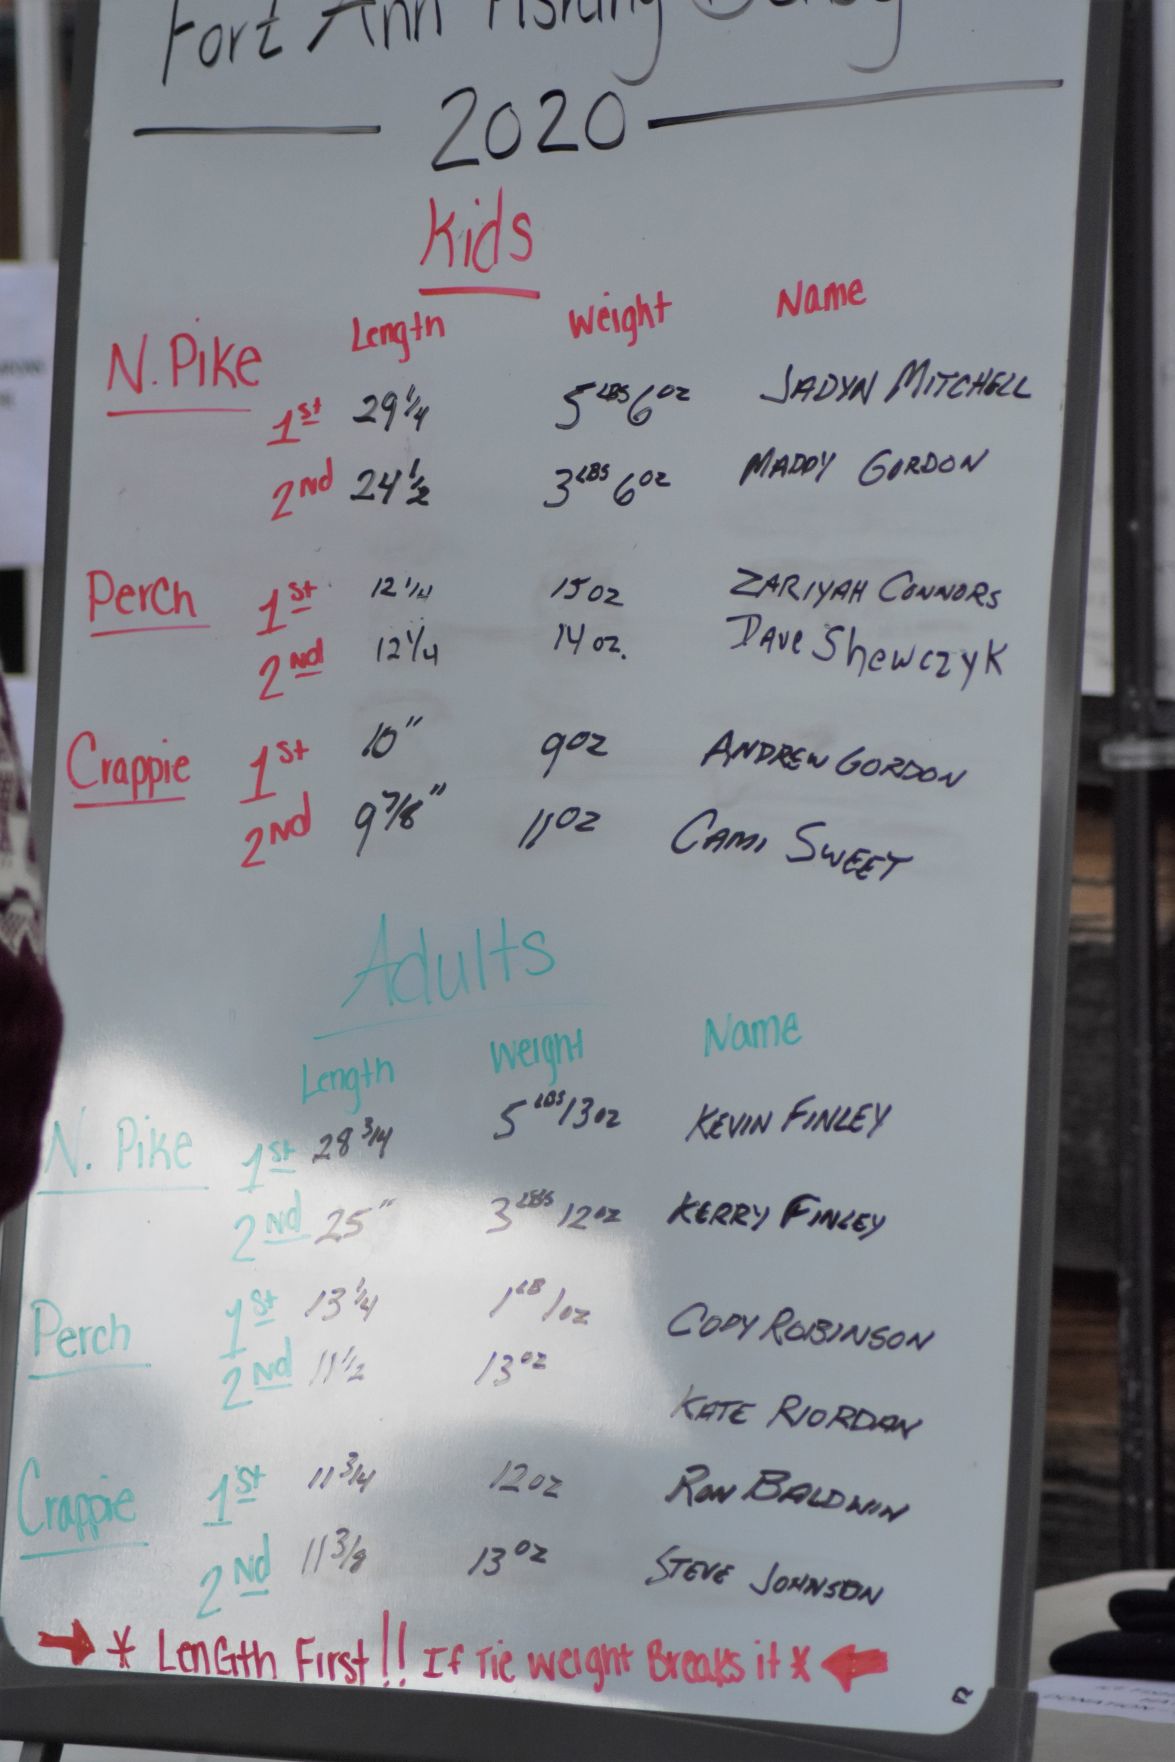 Fort Ann Fishing Derby
2020
Kids
Length Weight Name
N. Pike
1st 29 1/4 5 LBS 6 oz JADYN MITCHELL
2nd 24 1/2 3 LBS 6 oz MADDY GORDON
Perch 1st 12 1/4 15 oz ZARIYAH CONNORS
2nd 12 1/4 14 oz. Dave Shewczyk
Crappie 1st 10" 9 oz ANDREW GORDON
2nd 9 7/8" 11 oz CAMI SWEET
Adults
Length Weight Name
N. Pike 1st 28 3/4 5 LBS 13 oz KEVIN FINLEY
2nd 25" 3 LBS 12 oz KERRY FINLEY
Perch 1st 13 1/4 1 LB 1 oz CODY ROBINSON
2nd 11 1/2 13 oz KATE RIORDAN
Crappie 1st 11 3/4 12 oz RON BALDWIN
2nd 11 3/8 13 oz STEVE JOHNSON
→ * LenGth First!! If Tie weight Breaks it * ←